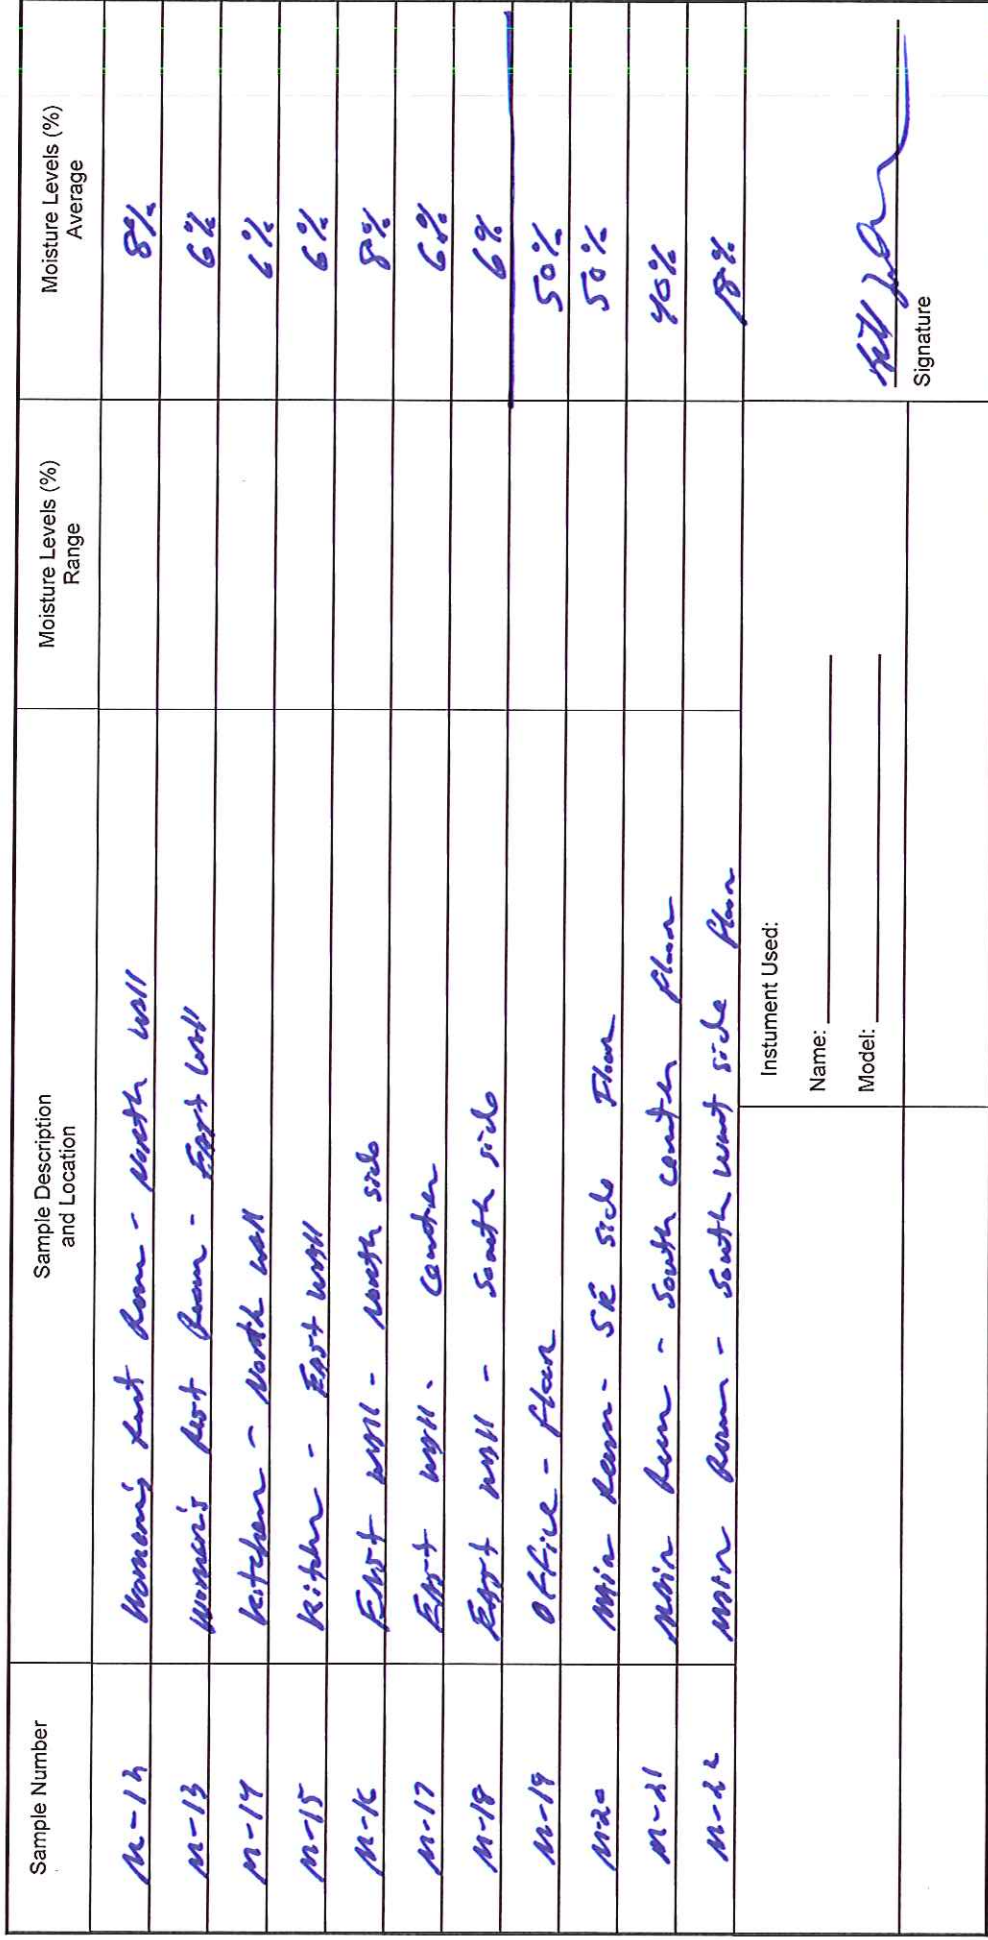 Sample Number Sample Description and Location Moisture Levels (%) Range Moisture Levels (%) Average
M-12 Women's Rest Room - North Wall 8%
M-13 Women's Rest Room - East Wall 6%
M-14 Kitchen - North Wall 6%
M-15 Kitchen - East Wall 6%
M-16 East Wall - North side 8%
M-17 East Wall - Center 6%
M-18 East Wall - South side 6%
M-19 Office - Floor 50%
M-20 Main Room - SE side Floor 50%
M-21 Main Room - South center floor 40%
M-22 Main Room - South west side floor 18%
Instument Used:
Name:
Model:
Signature